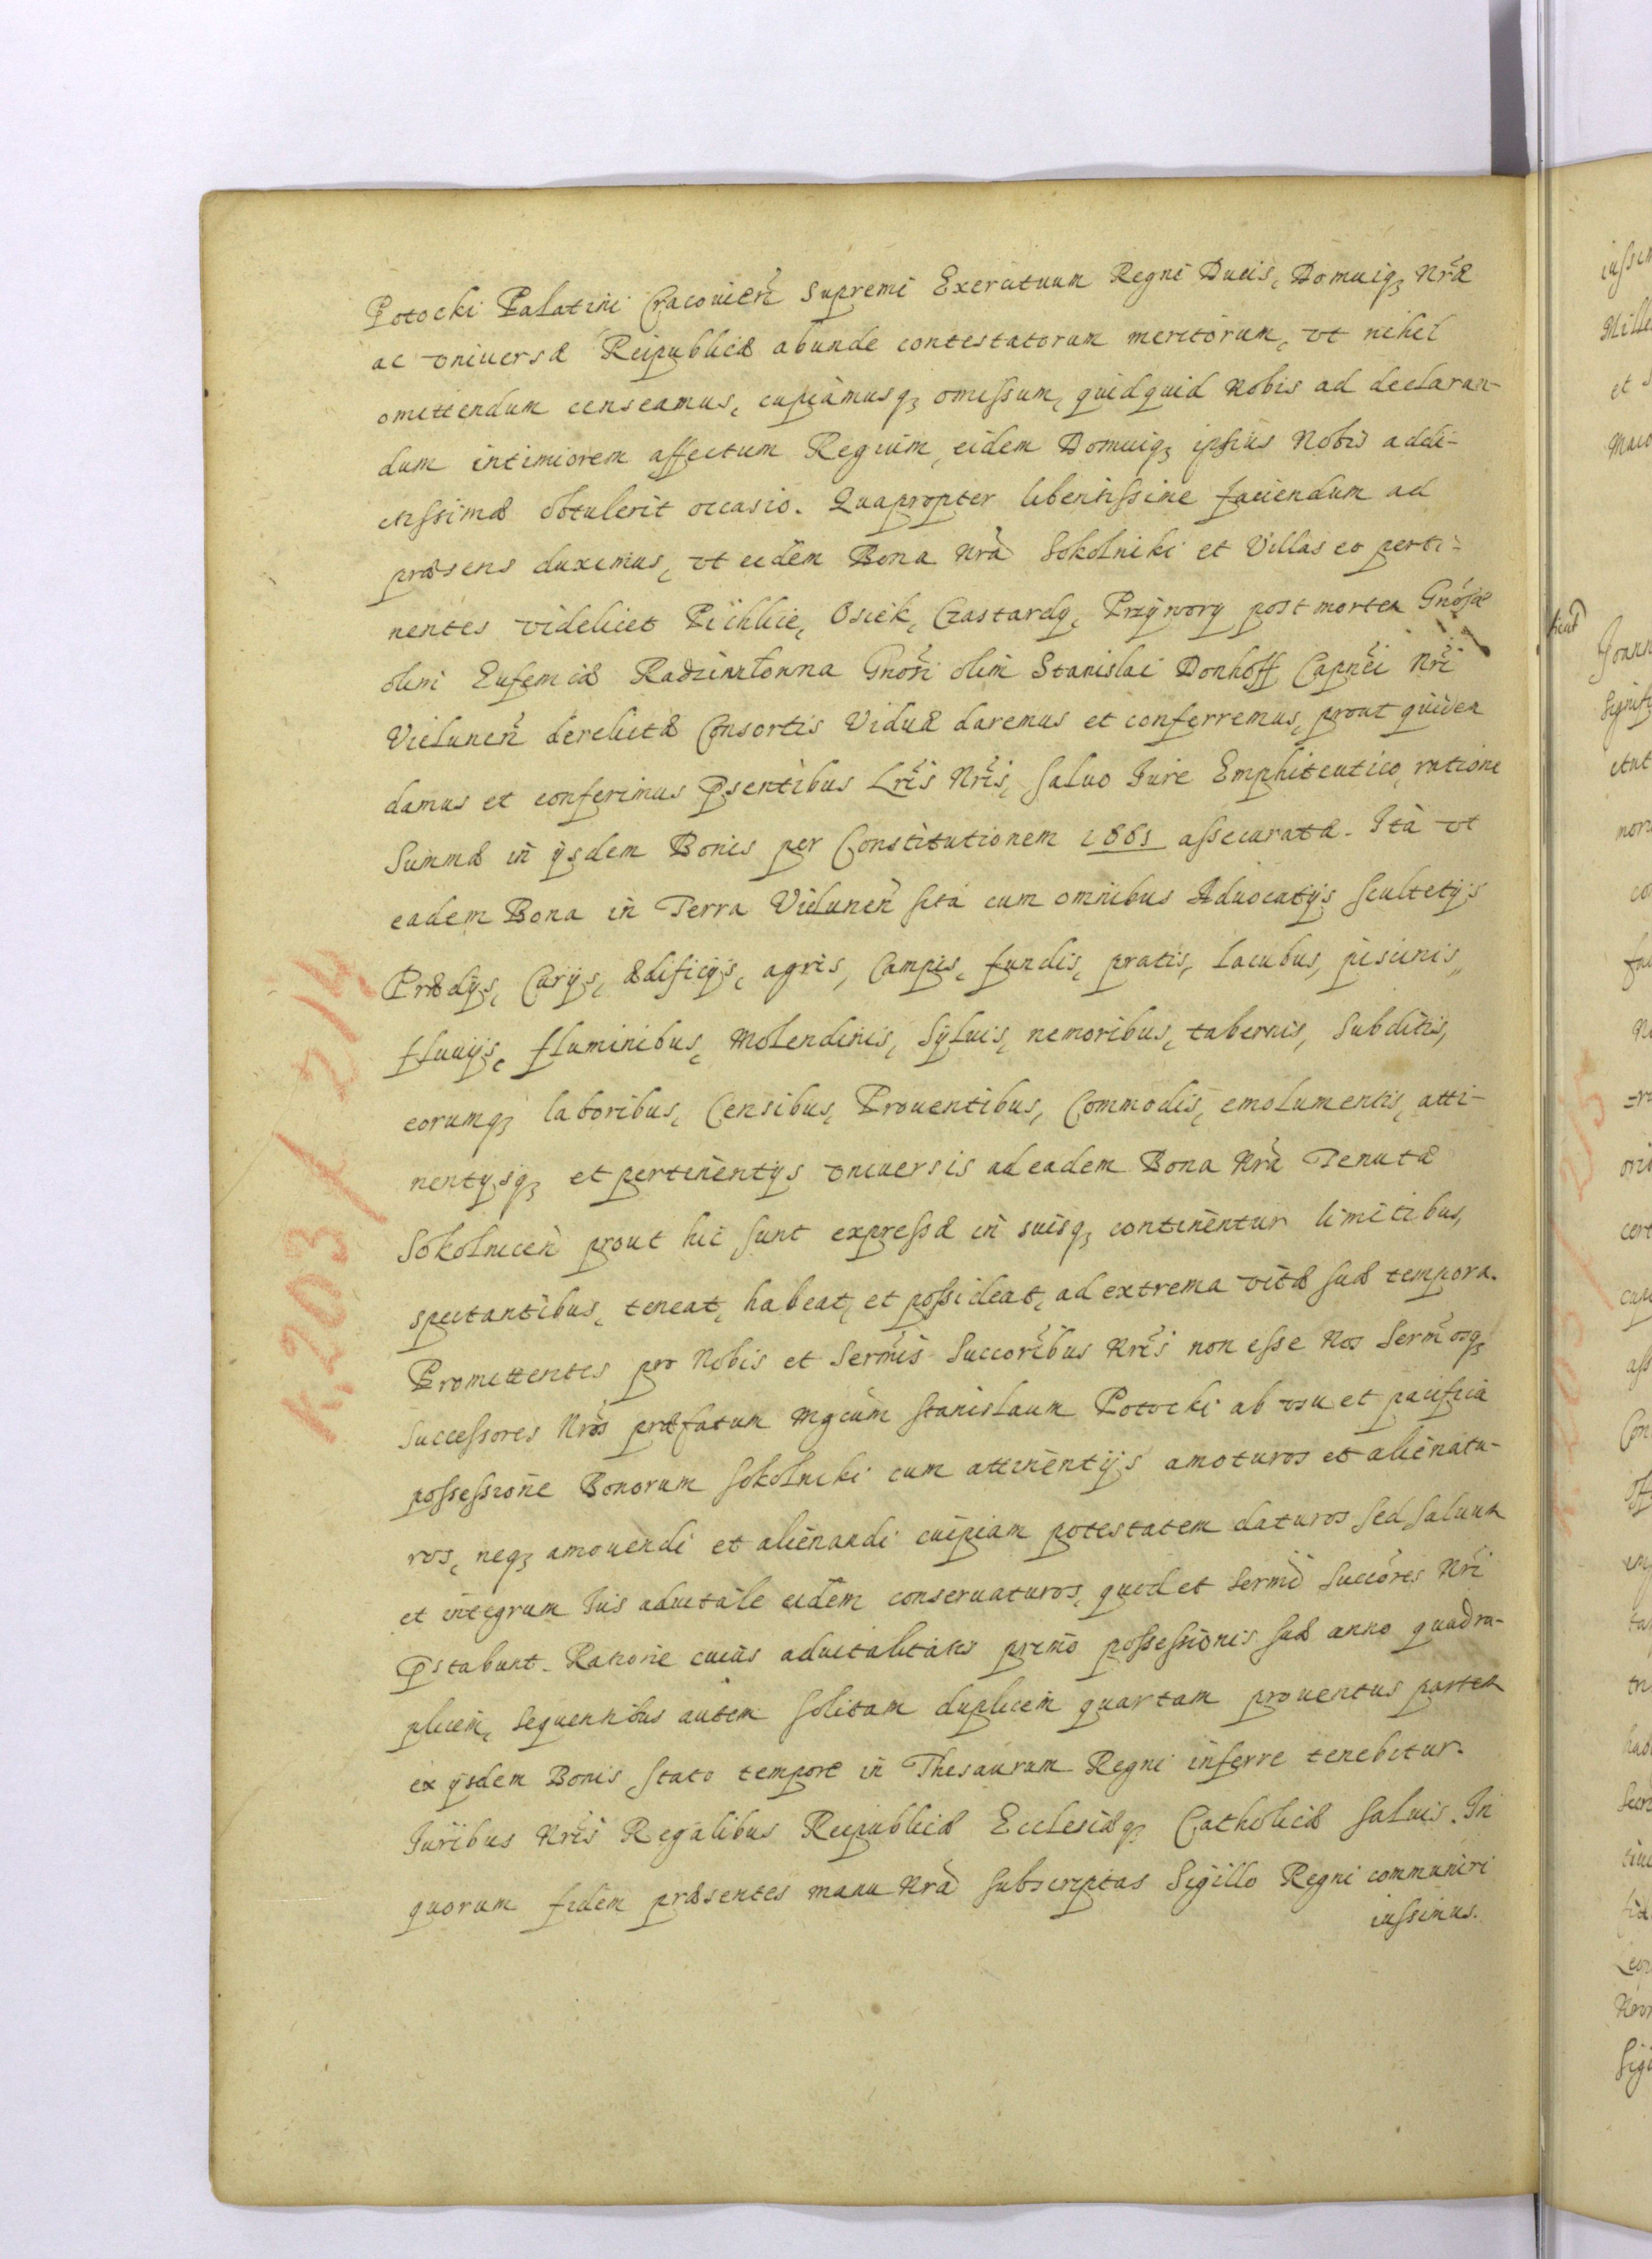 Potocki Palatini Cracovien̄ Supremi Exercituum Regni Ducis, Domuiq₃ Nr̃æ
ac vniuersæ Reipublicæ abunde contestatorum meritorum, vt nihil
omittendum censeamus, cupiamusq₃ omissum, quidquid Nobis ad declaran-
dum intimiorem affectum Regium, eidem Domuiq₃ ipsius Nobis addi-
ctissimæ obtulerit occasio. Quapropter libentissime faciendum ad
præsens duximus, vt eidem Bona Nr̃a Sokolniki et Villas eo perti-
nentes videlicet Pichlice, Osiek, Czastardy, Przywory post mortem Gnosæ
olim Eufemiæ Radziwiłowna Gnosi olim Stanislai Donhoff Capnei Nr̃i
Vielunen̄ derelictæ Consortis Viduæ daremus et conferremus, prout quidem
damus et conferimus Pn̄sentibus Lr̃is Nr̃is, saluo Iure Emphiteutico, ratione
Summæ in ijsdem Bonis per Constitutionem 1661 assecuratæ. Ita vt
eadem Bona in Terra Vielunen̄ sita cum omnibus Aduocatijs scultetijs
Prædijs, Curijs, ædificijs, agris, Campis, fundis, pratis, Lacubus, piscinis,
fluuijs, fluminibus, Molendinis, Syluis, nemoribus, tabernis, Subditis,
eorumq₃ laboribus, Censibus, Prouentibus, Commodis, emolumentis, atti-
nentijsq₃ et pertinentijs vniuersis ad eadem Bona Nr̃a Tenutæ
Sokolnicen̄ prout hic sunt expressa in suisq₃ continentur limitibus,
spectantibus, teneat, habeat, et possideat, ad extrema vitæ suæ tempora.
Promittentes pro Nobis et Serm̃is Succoribus Nr̃is non esse Nos Serm̃osq₃
Successores Nr̃os præfatum Mgcum Stanislaum Potocki ab vsu et pacifica
possessione Bonorum Sokolniki cum attinentijs amoturos et alienatu-
ros, neq₃ amouendi et alienandi cuipiam potestatem daturos sed saluum
et integrum Ius aduitale eidem conseruaturos, quod et Serm̃i Succores Nr̃i
Pn̄stabunt. Ratione cuius aduitalitatis primo possessionis suæ anno quadru-
plicem, sequentibus autem solitam duplicem quartam prouentus partem
ex ijsdem Bonis stato tempore in Thesaurum Regni inferre tenebitur.
Iuribus Nr̃is Regalibus Reipublicæ Ecclesiæq₃ Catholicæ saluis. In
quorum fidem præsentes manu Nr̃a subscriptas Sigillo Regni communiri
iussimus.
K. 203 f 214